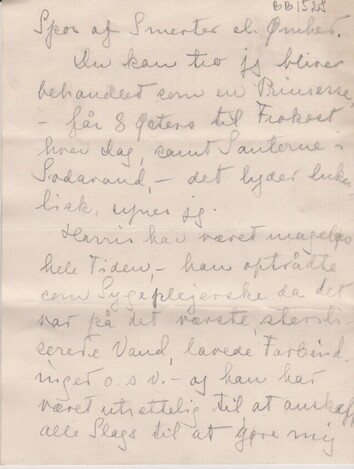 BB1528
Spor af Smerter el. Ømhed.
Du kan tro jeg bliver
behandlet som en Prinsesse
- får 8 Østers til Frokost
hver Dag, samt Sauterne i
Sodavand, - det lyder luku-
lisk, synes jeg.
Harris har været mageløs
hele Tiden, - han optrådte
som Sygeplejerske da det
var på det værste, sterili-
serede Vand, lavede Forbind-
inger o.s.v. - og han har
været utrættelig til at anskaffe
alle Slags til at gøre mig